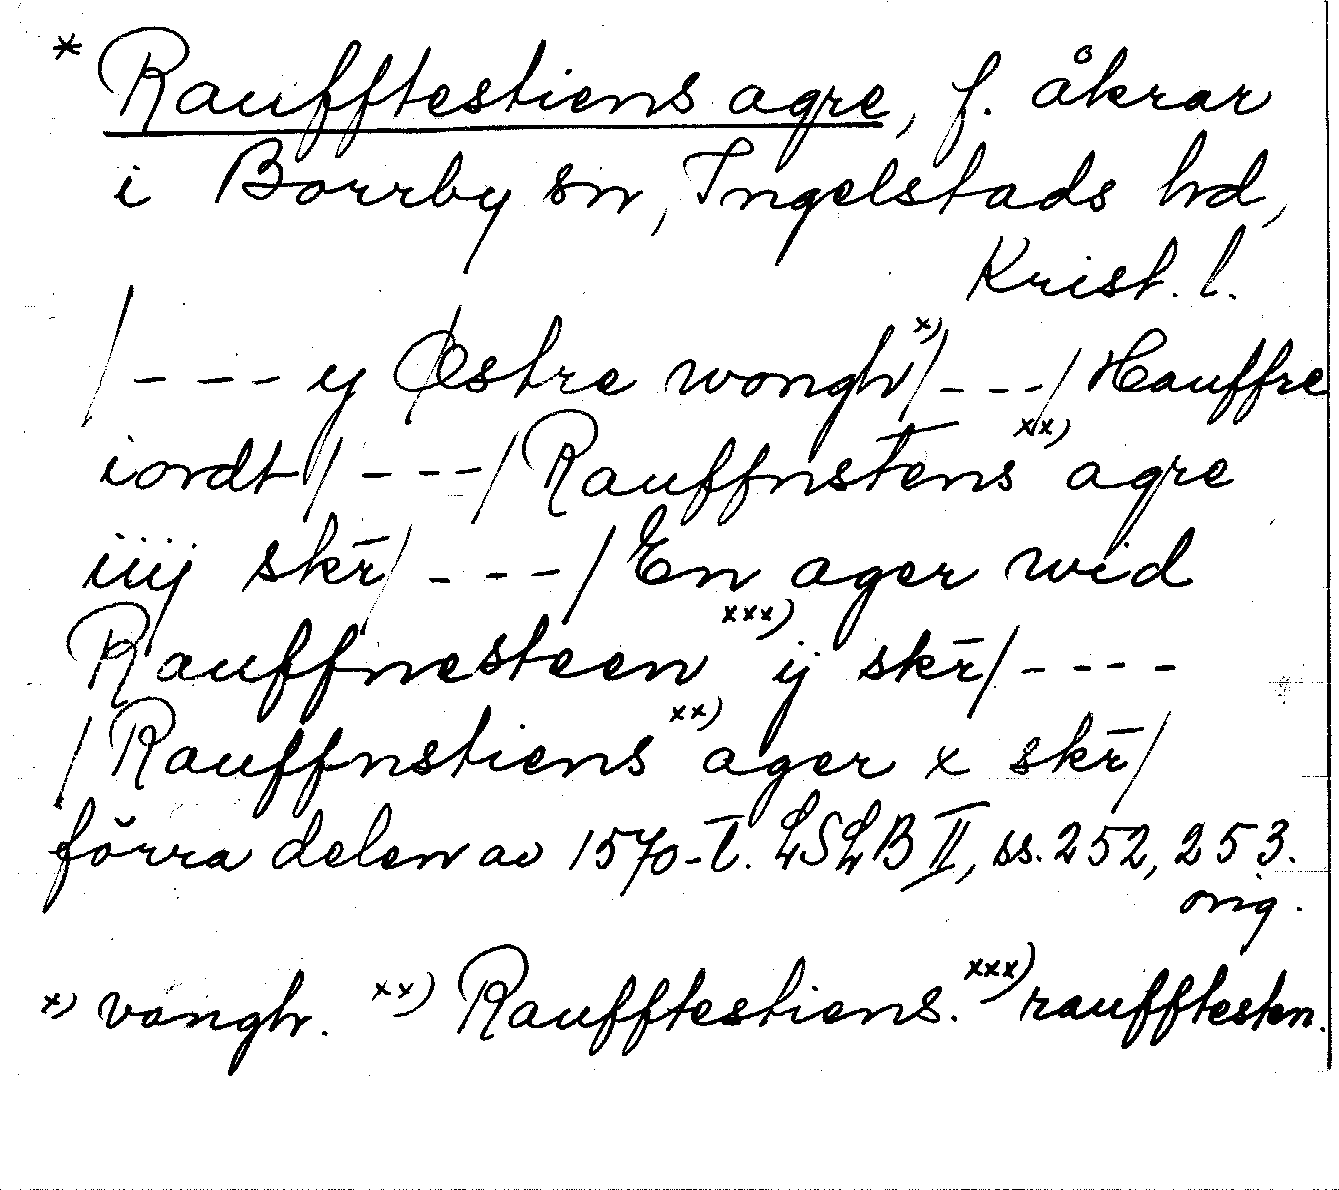 * Raufftestiens agre, f. åkrar
i Borrby sn, Ingelstads hd,
Krist. l.
/- - - y Østre wongh x)/- - -/ Hauffre
iordt/- - -/ Rauffnstens xx) agre
iiij skr̄/- - -/ En ager wid
Rauffnesteen xxx) ij skr̄/- - - -
/Rauffnstiens xx) ager x skr̄/
förra delen av 1570-t. LSLB II, ss. 252, 253.
orig.
x) vangh. xx) Raufftestiens. xxx) raufftesten.